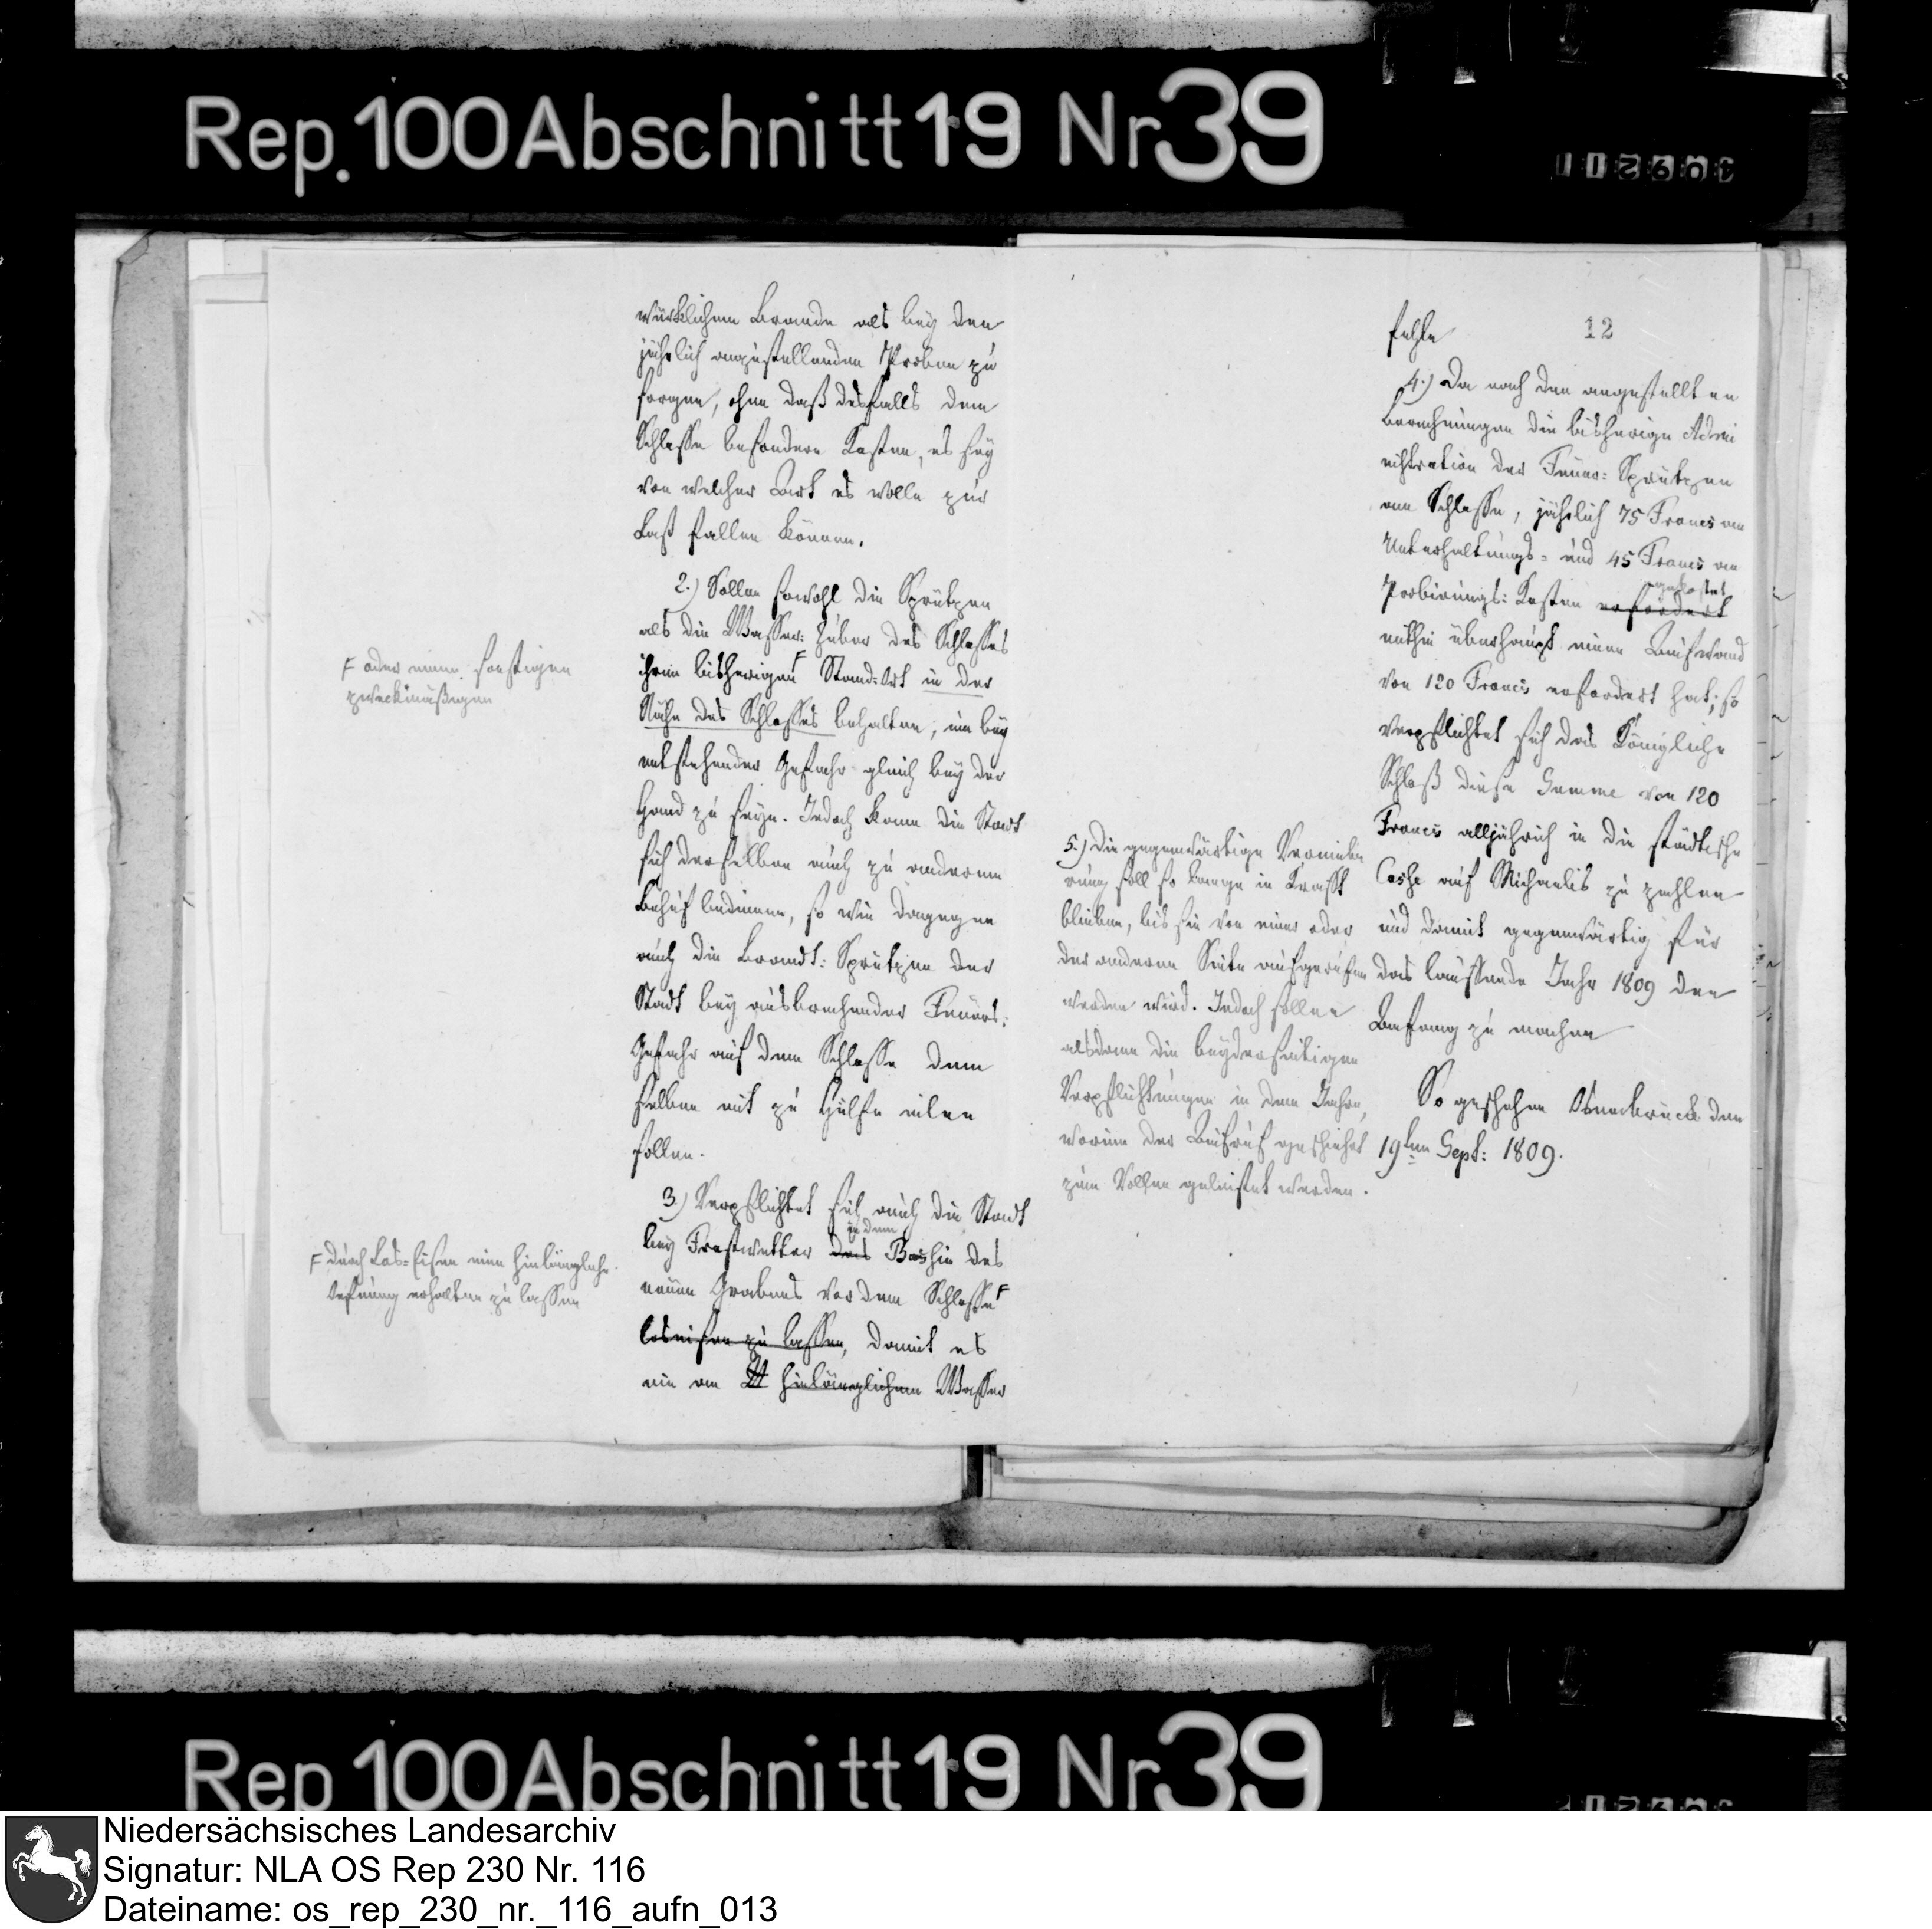 Rep. 100 Abschnitt 19 Nr 39
würklichem Brande als bey den
jährlich anzustellenden Proben zu
sorgen, ohne daß desfalls dem
Schlosse besondere Kosten, es sey
von welcher Art es wolle zur
Last fallen können.
2.) Sollen sowohl die Sprützen
als die Wasser: Züber des Schlosses
ihren bisherigen F Stand-Ort in der
Nähe des Schlosses behalten, um bey
entstehender Gefahr gleich bey der
Hand zu seyn. Jedoch kann die Stadt
sich derselben auch zu anderem
Behuf bedienen, so wie dagegen
auch die Brandt: Sprützen der
Stadt bey ausbrechender Feuers:
Gefahr auf dem Schlosse dem
selben mit zu Hülfe eilen
sollen.
3.) Verpflichtet sich auch die Stadt
in dem
bey Frostwetter das Bashin des
neuen Grabens vor dem Schlosse F
loseisen zu lassen, damit es
nie an hinlänglichem Wasser
F oder einen sonstigen
zweckmäßigen
F durch Los-Eisen eine hinlängliche
Oefnung erhalten zu lassen
12
fehle
4.) Da nach den angestellten
Berechnungen die bisherige Admi
nistration der Feuer: Sprützen
am Schlosse, jährlich 75 Francs an
Unterhaltungs- und 45 Francs an
gekostet
Probirungs: Kosten erfordert
mithin überhaupt einen Aufwand
von 120 Francs erfordert hat; so
verpflichtet sich das Königliche
Schloß diese Summe von 120
Francs alljährich in die städtische
Casse auf Michaelis zu zahlen
und damit gegenwärtig für
das lauffende Jahr 1809 den
Anfang zu machen
So geschehen Osnabrück den
19ten Sept: 1809.
5.) Die gegenwärtige Vereinba
rung soll so lange in Krafft
bleiben, bis sie von einer oder
der anderen Seite aufgerufen
werden wird. Jedoch sollen
alsdann die beyderseitigen
Verpflichtungen in dem Jahre,
worinn der Aufruf geschiehet
zum Vollen geleistet werden.
Rep 100 Abschnitt 19 Nr 39
Niedersächsisches Landesarchiv
Signatur: NLA OS Rep 230 Nr. 116
Dateiname: os_rep_230_nr._116_aufn_013